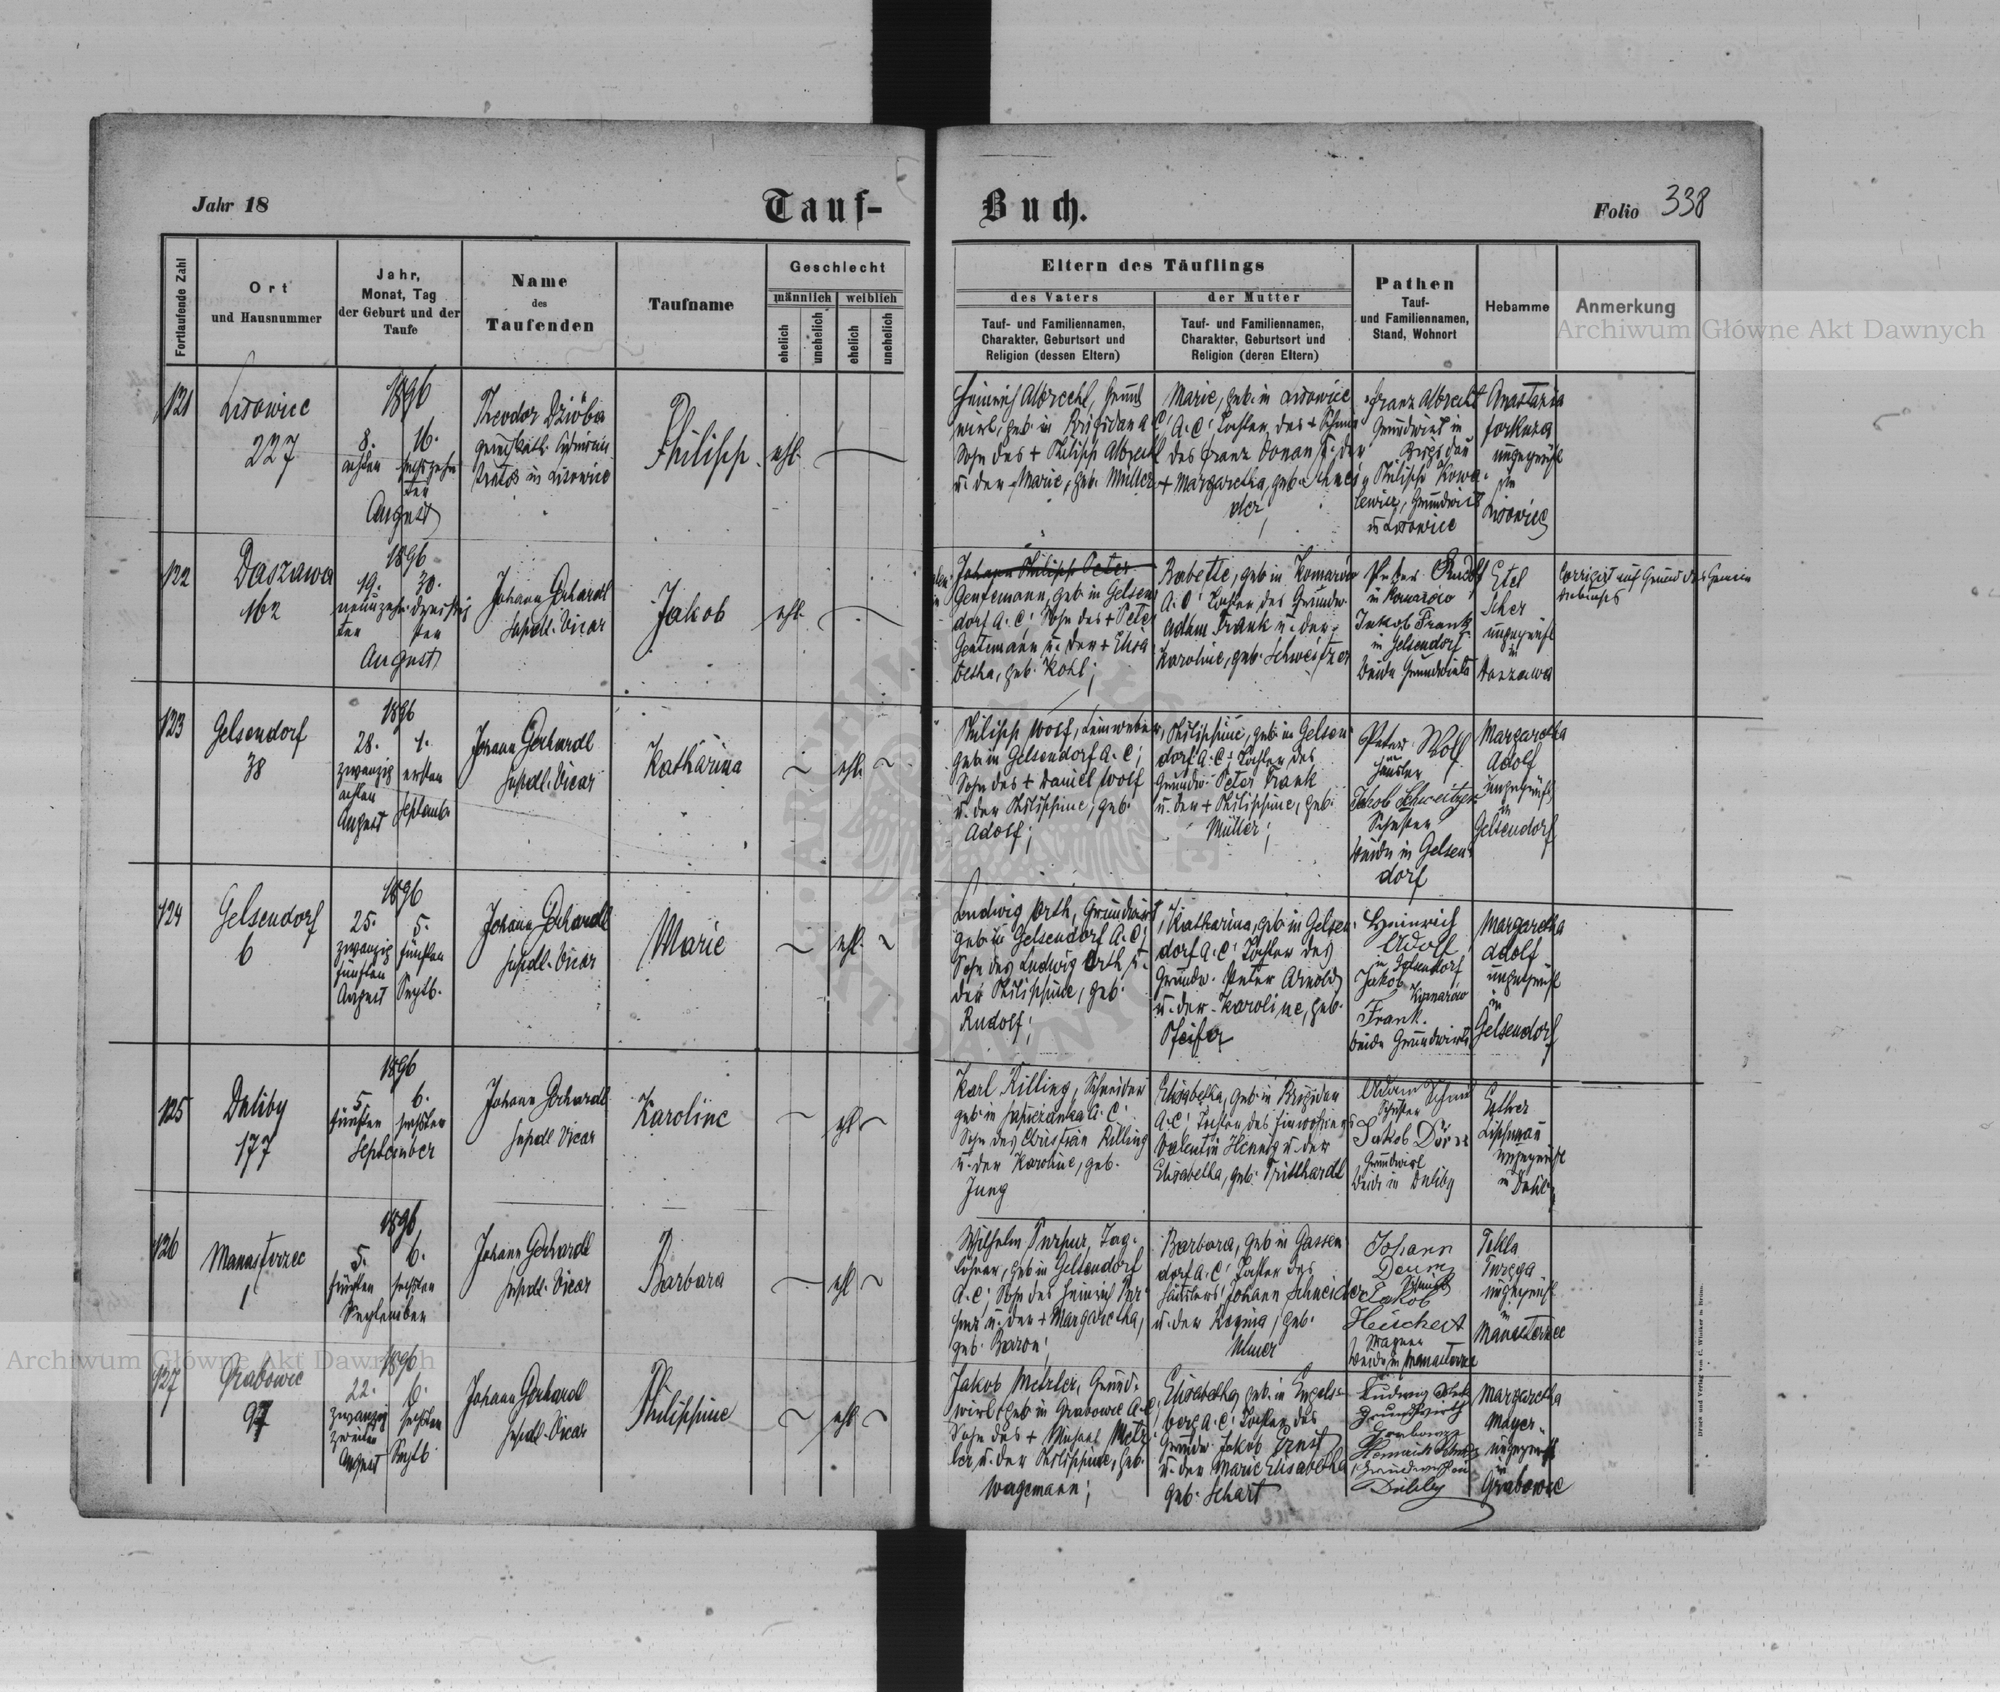 Jahr 18
Tauf-
Buch.
Folio 338
Fortlaufende Zahl
Ort
und Hausnummer
Jahr,
Monat, Tag
der Geburt und der
Taufe
Name
des
Taufenden
Taufname
Geschlecht
männlich weiblich
ehelich
unehelich
ehelich
unehelich
Eltern des Täuflings
des Vaters
der Mutter
Tauf- und Familiennamen,
Charakter, Geburtsort und
Religion (dessen Eltern)
Tauf- und Familiennamen,
Charakter, Geburtsort und
Religion (deren Eltern)
Pathen
Tauf-
und Familiennamen,
Stand, Wohnort
Hebamme
Anmerkung
Archiwum Główne Akt Dawnych
121
Lisowiec
227
1896
8. 16.
achten sechszehn
ten
August
Theodor
in Lisowice
Philipp
ehl.
Heinrich Albrecht, Grund
wirt, geb. in Brigidau A. C.
Sohn des + Philipp Albrecht
u. der Marie, geb. Müller
Marie, geb. in Lisowice
A. C. Tochter des +
des Franz Donan u. der
+ Margaretha, geb. Schnei
der
Franz Albrecht
Grundwirt in
Brigidau
Philipp Kowa-
lewicz, Grundwirt
in Lisowice
Anastazia
ungeprüft
in
Lisowiec
122
Daszawa
162
1896
19. 30.
neunzehn dreißig
ten sten
August
Johann Gerhardt
Vicar
Jakob
ehl.
Johann Philipp Peter
Gentemann, geb. in Gelsen
dorf A. C. Sohn des + Peter
Gentemann u. der + Elisa
betha, geb. Kohl;
Babette, geb. in Komarow
A. C. Tochter des Grundw.
Adam Frank u. der
Karoline, geb. Schweitzer
Peter Rudolf
in Komarow
Jakob Frank
in Gelsendorf
beide Grundwirte
Etel
Scher
ungeprüft
in
Daszawa
Corrigirt auf Grund des
123
Gelsendorf
38
1896
28. 1.
zwanzig ersten
achten Septemb.
August
Johann Gerhardt
Vicar
Katharina
ehl.
Philipp Wolf, Leinweber,
geb. in Gelsendorf A. C.;
Sohn des + Daniel Wolf
u. der Philippine, geb.
Adolf;
Philippine, geb. in Gelsen
dorf A. C. Tochter des
Grundw. Peter Frank
u. der + Philippine, geb.
Müller;
Peter Wolf
Häusler
Jakob Schweitzer
Schuster
beide in Gelsen
dorf
Margaretha
Adolf
ungeprüft
in
Gelsendorf
124
Gelsendorf
6
1896
25. 5.
zwanzig fünften
fünften Septb.
August
Johann Gerhardt
Vicar
Marie
ehl.
Ludwig Orth, Grundwirt,
geb. in Gelsendorf A. C.;
Sohn des Ludwig Orth u.
der Philippine, geb.
Rudolf;
Katharina, geb. in Gelsen
dorf A. C. Tochter des
Grundw. Peter Arnold
u. der Karoline, geb.
Pfeifer
Heinrich
Adolf
in Gelsendorf
Jakob
Komarow
Frank
beide Grundwirte
Margaretha
Adolf
ungeprüft
in
Gelsendorf
125
Duliby
177
1896
5. 6.
fünften sechsten
September
Johann Gerhardt
Vicar
Karoline
ehl.
Karl Killing, Schneider
geb. in A. C.
Sohn des Christian Killing
u. der Karoline, geb.
Jung
Elisabetha, geb. in Brigidau
A. C. Tochter des Einwohners
Valentin Hennig u. der
Elisabetha, geb.
Adam Schmid
Schuster
Jakob
Grundwirt
beide in Duliby
Esther
ungeprüft
in Duliby
126
Manasterzec
1
1896
5. 6.
fünften sechsten
September
Johann Gerhardt
Vicar
Barbara
ehl.
Wilhelm Purpur, Tag-
löhner, geb. in Gelsendorf
A. C.; Sohn des Heinrich Pur-
pur u. der + Margaretha,
geb. Baron;
Barbara, geb. in Gassen
dorf A. C. Tochter des
Häuslers Johann Schneider
u. der Regina, geb.
Ulmer
Johann
Daum
Schmied
Jakob
Heuchert
Wagner
beide in Manasterzec
Tekla
ungeprüft
in
Manasterzec
127
Grabowce
97
1896
22. 6.
zwanzig sechsten
zweiten Septb.
August
Johann Gerhardt
Vicar
Philippine
ehl.
Jakob Metzler, Grund-
wirt, geb. in Grabowce A. C.
Sohn des + Michael Metz
ler u. der Philippine, geb.
Wagemann;
Elisabetha, geb. in Engels-
berg A. C. Tochter des
Grundw. Jakob Ernst
u. der Marie Elisabetha
geb. Schart
Ludwig
Grundwirth
Grabowce
Heinrich
Grundwirth in
Duliby
Margaretha
Mayer
ungeprüft
in
Grabowce
Archiwum Główne Akt Dawnych